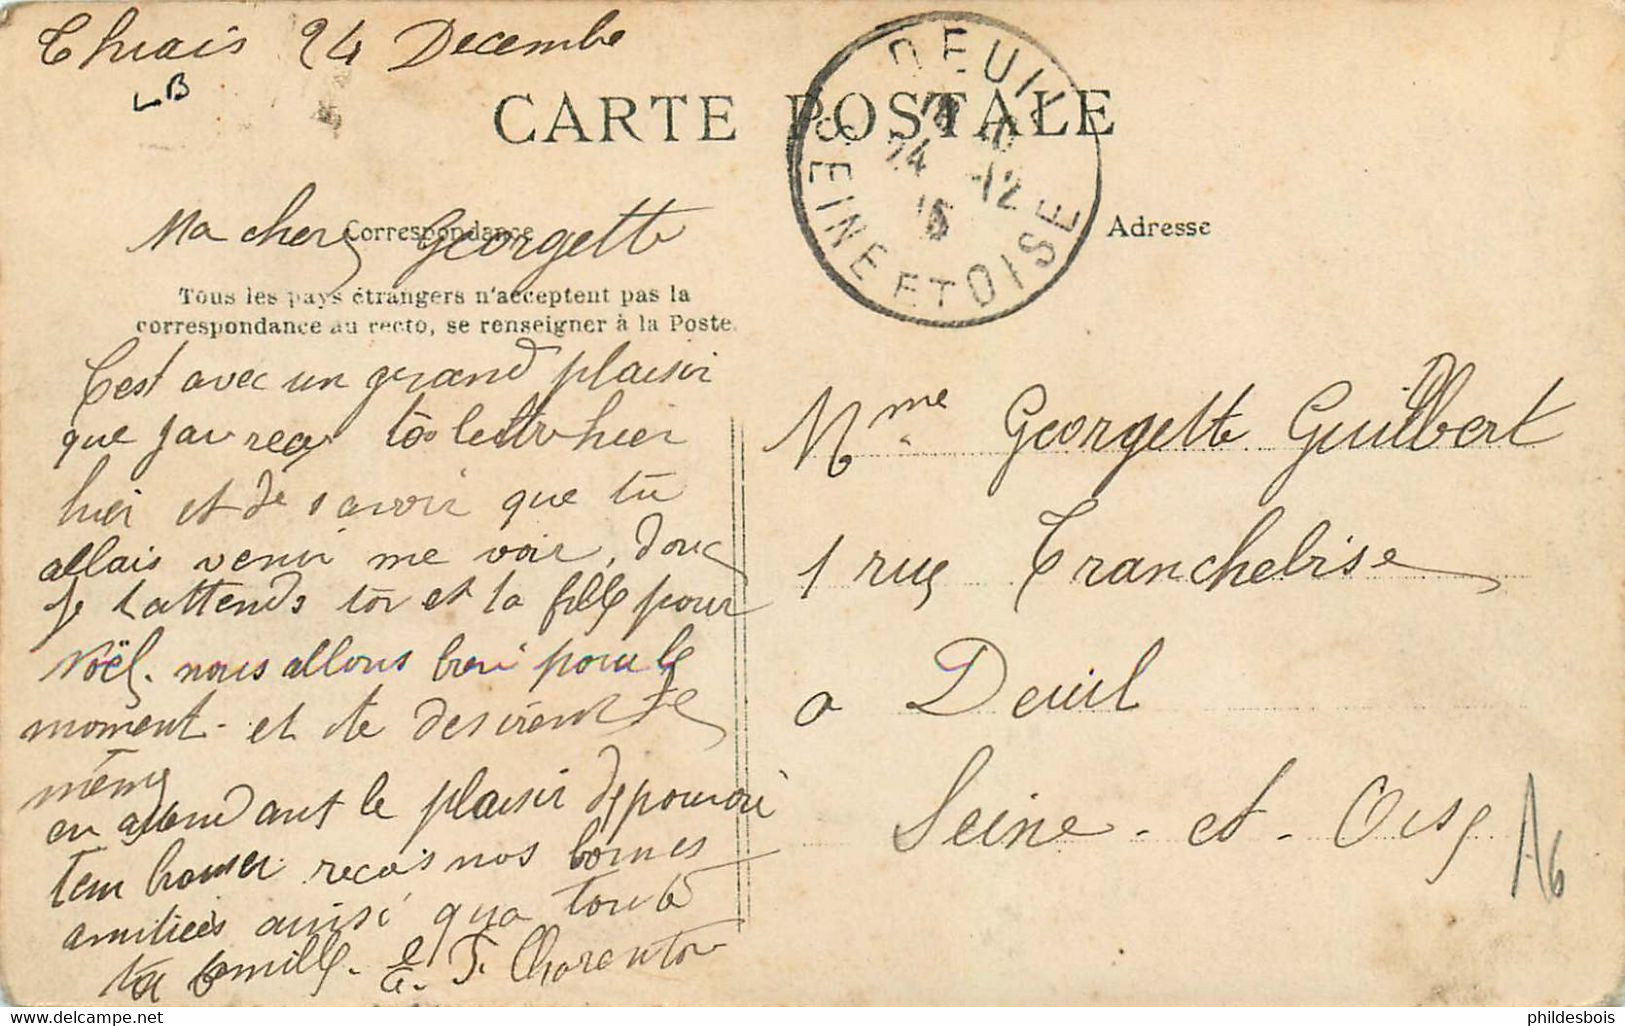 Thiais 24 Decembre
LB
CARTE POSTALE
DEUIL
24 -12
15
SEINE ET OISE
Correspondance
Adresse
Ma cher Georgette
Tous les pays étrangers n'acceptent pas la
correspondance au recto, se renseigner à la Poste.
C'est avec un grand plaisir
que jai reçu ta lettre hier
hier et de savoir que tu
allais venir me voir, donc
je t'attends toi et ta fille pour
Noël. nous allons bien pour le
moment - et te desirent de
même
en attendant le plaisir de pouvoir
recois nos bonnes
amitiées ainsi qua toute
ta famille. T. Charenton
Mme Georgette Guilbert
1 rue Tranchebise
a Deuil
Seine - et - Oise
A6
phildesbois